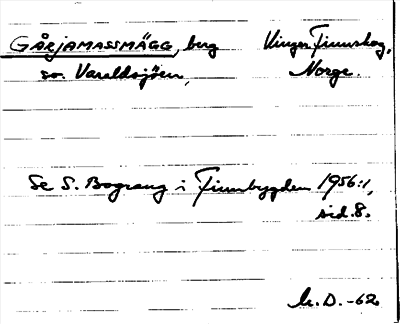 GÅRJAMASSMÄGG, berg Vinger Finnskog,
so. Varaldsjöen, Norge.
Se S. Bograng i Finnbygden 1956:1,
sid. 8.
-62